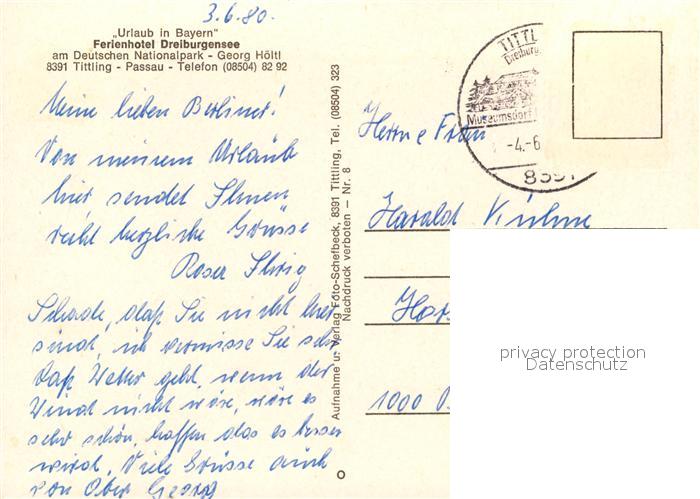 3.6.80.
„Urlaub in Bayern"
Ferienhotel Dreiburgensee
am Deutschen Nationalpark - Georg Höltl
8391 Tittling - Passau - Telefon (08504) 82 92
Meine lieben Berliner!
Von meinem Urlaub
hier sendet Ihnen
recht herzliche Grüsse
Schade, daß Sie nicht hier
sind, ich vermisse Sie sehr
Daß Wetter geht, wenn der
Wind nicht wäre, wäre es
sehr schön, hoffen das es besser
wird. Viele Grüsse auch
von Ober Georg
Aufnahme u. Verlag Foto-Schefbeck, 8391 Tittling, Tel. (08504) 323
Nachdruck verboten — Nr. 8
TITTL
Dreiburg
Museumsdorf
-4.-6
8391
Herrn e Frau
Harald Kühne
1000
privacy protection
Datenschutz